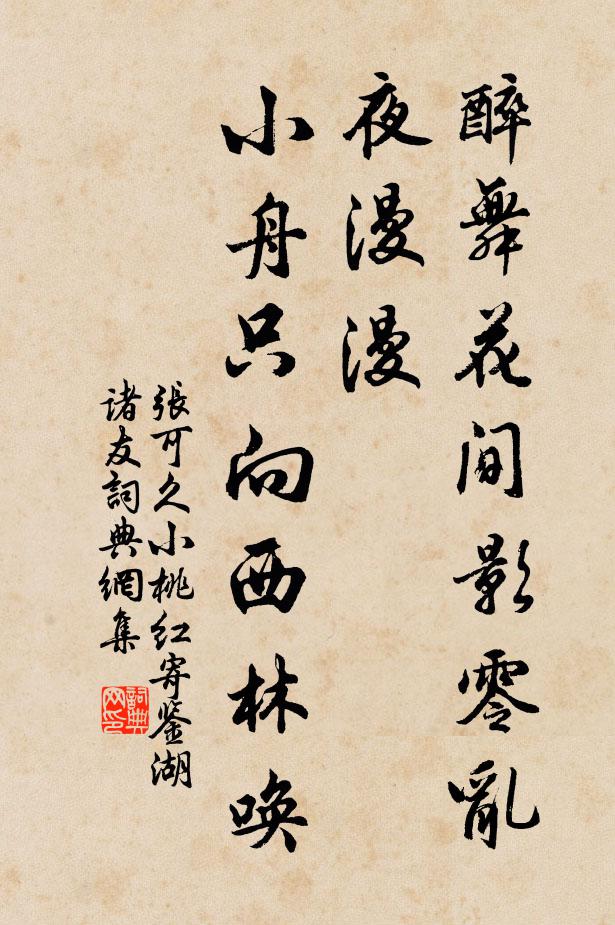 醉舞花間影零亂
夜漫漫
小舟只向西林喚
張可久小桃红寄鉴湖
诸友詞典網集
詞典
网印